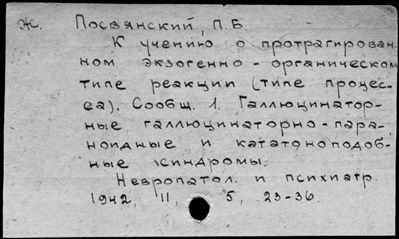 Ж. Посвянский, П.Б.
К учению о протрагирован
ном экзогенно-органическом
типе реакции (типе процес-
са). Сообщ. 1. Галлюцинатор-
ные, галлюцинаторно-пара-
ноидные и кататоноподоб-
ные синдромы.
Невропатол. и психиатр.
1942, 11, 5, 23-36.